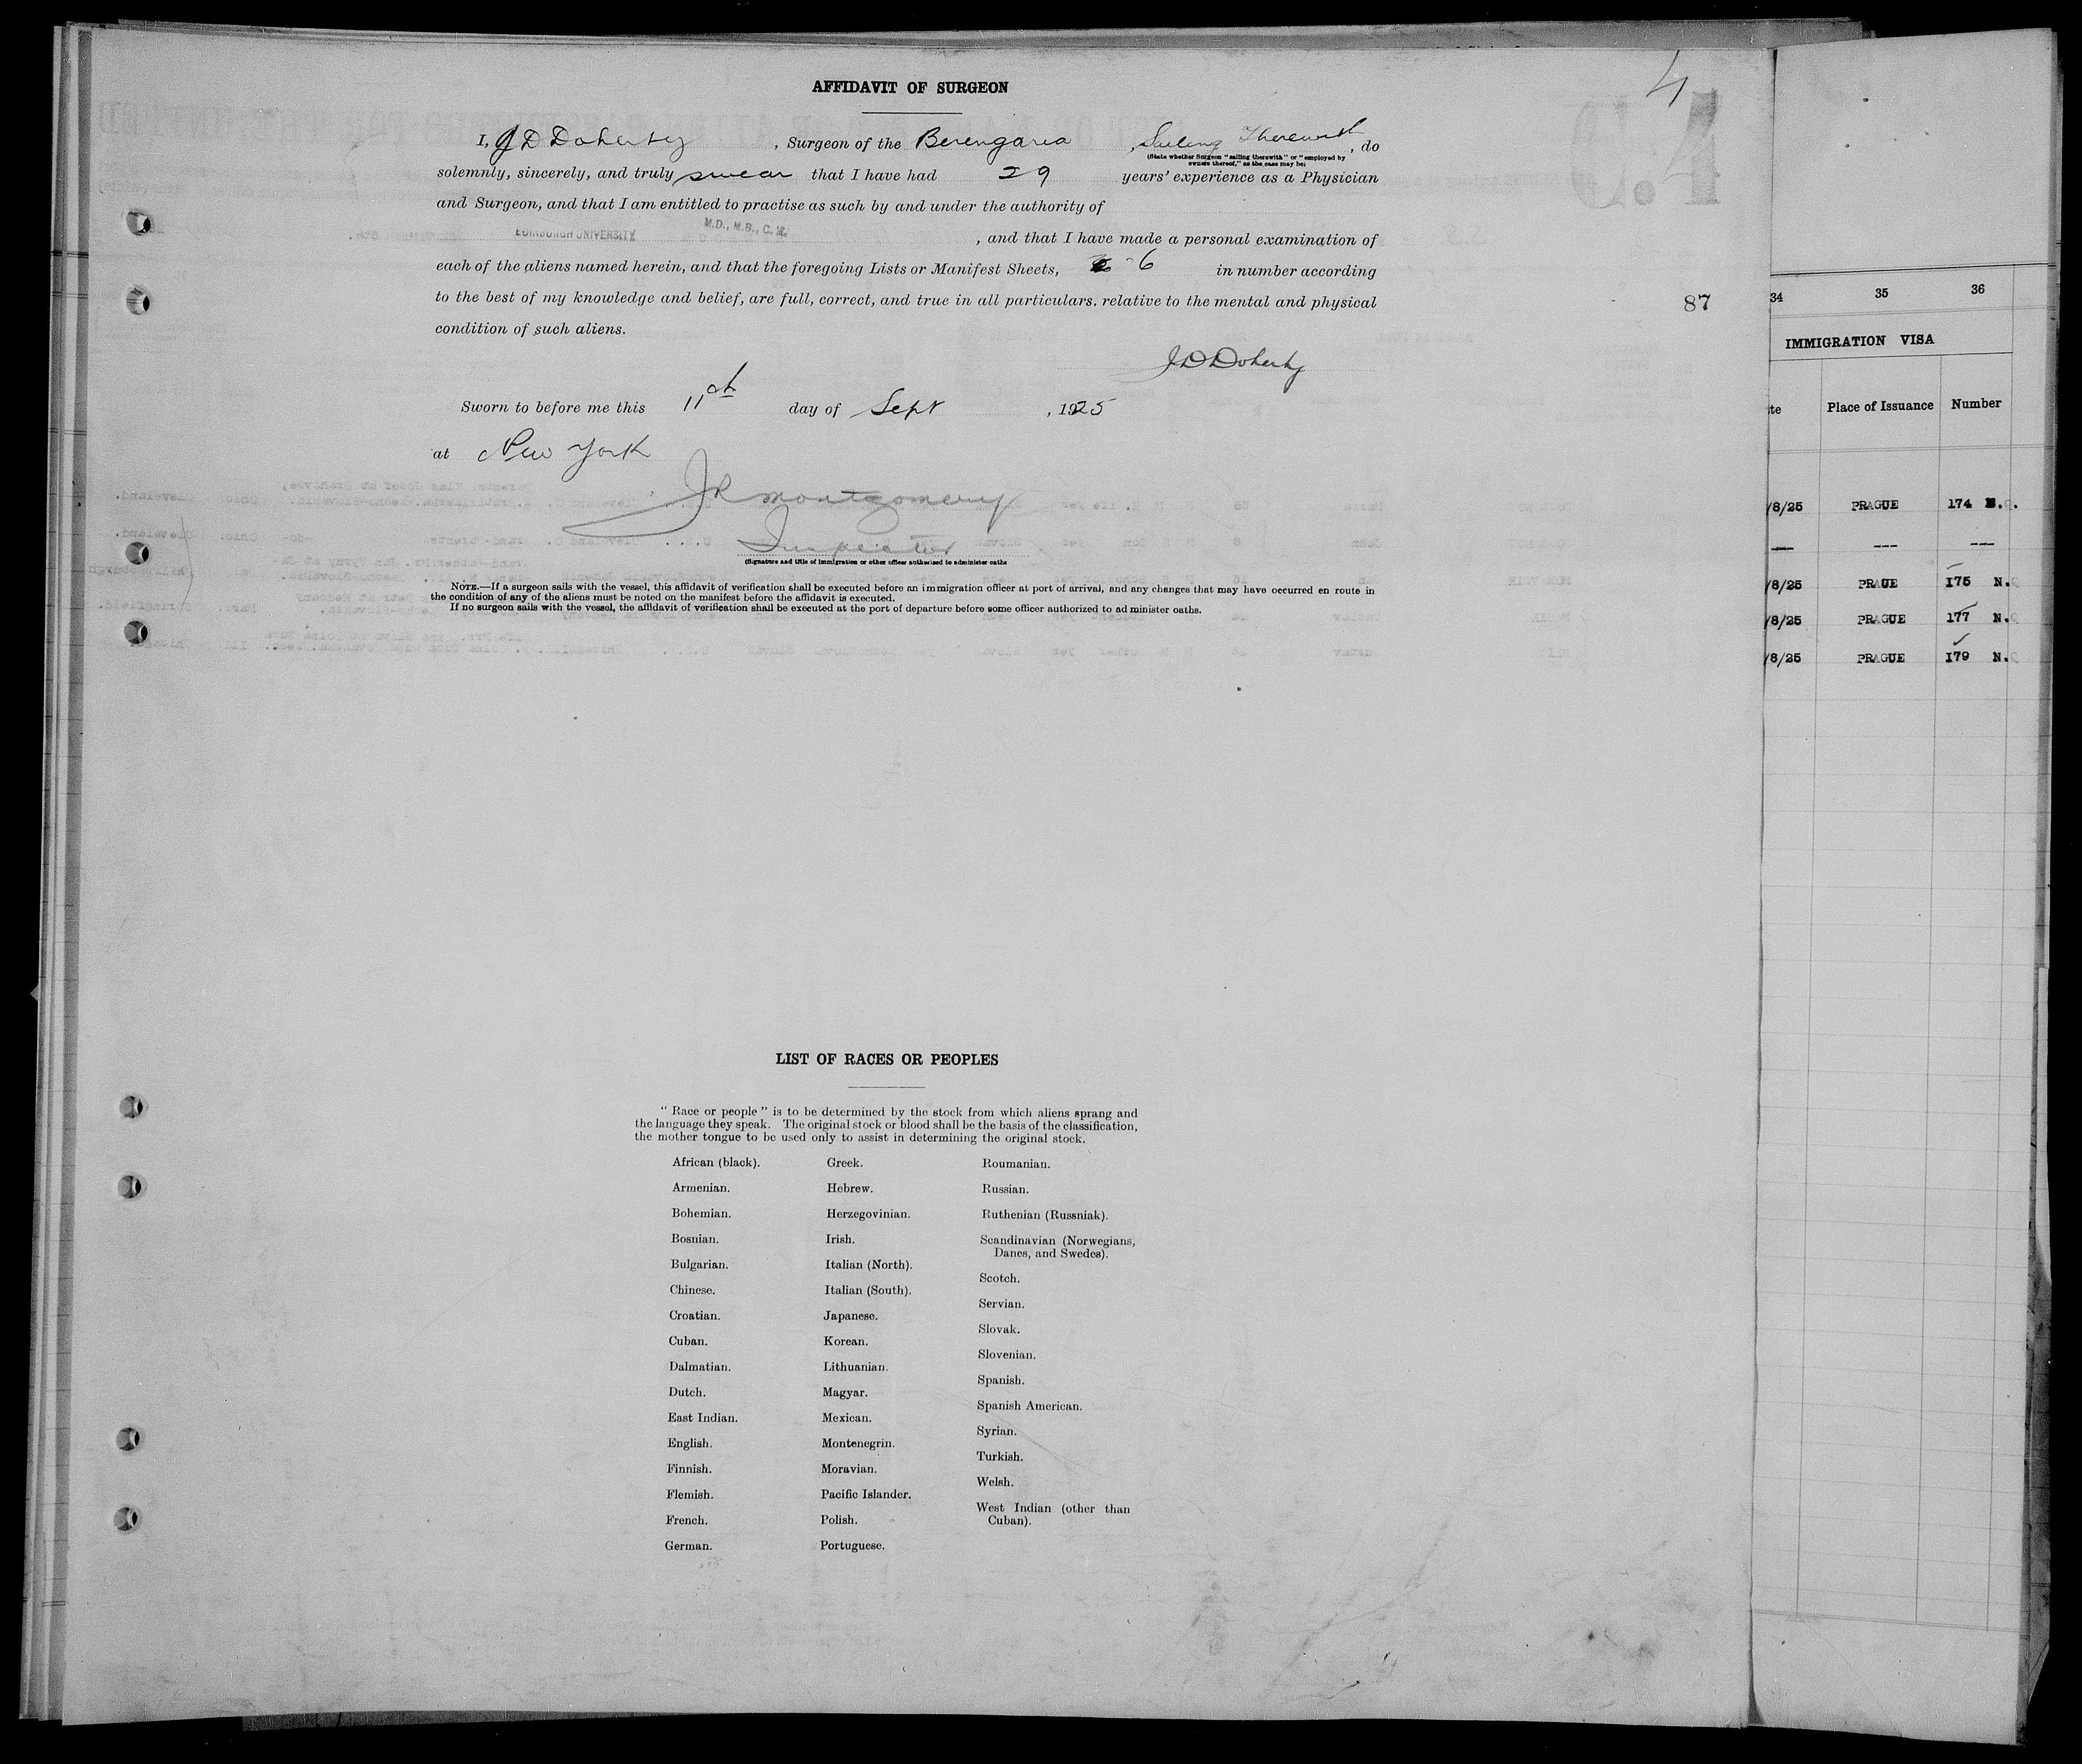 4
AFFIDAVIT OF SURGEON
I, J D Doherty , Surgeon of the Berengaria , Sailing Therewith , do
(State whether Surgeon "sailing therewith" or "employed by
owners thereof," as the case may be)
solemnly, sincerely, and truly swear that I have had 29 years' experience as a Physician
and Surgeon, and that I am entitled to practise as such by and under the authority of
EDINBURGH UNIVERSITY M.D., M.B., C.M. , and that I have made a personal examination of
each of the aliens named herein, and that the foregoing Lists or Manifest Sheets, 6 in number according
to the best of my knowledge and belief, are full, correct, and true in all particulars, relative to the mental and physical
condition of such aliens.
87
J D Doherty
Sworn to before me this 11th day of Sept , 1925
at New York
JR Montgomery
Inspector
(Signature and title of immigration or other officer authorised to administer oaths
NOTE.—If a surgeon sails with the vessel, this affidavit of verification shall be executed before an immigration officer at port of arrival, and any changes that may have occurred en route in
the condition of any of the aliens must be noted on the manifest before the affidavit is executed.
If no surgeon sails with the vessel, the affidavit of verification shall be executed at the port of departure before some officer authorized to administer oaths.
LIST OF RACES OR PEOPLES
"Race or people" is to be determined by the stock from which aliens sprang and
the language they speak. The original stock or blood shall be the basis of the classification,
the mother tongue to be used only to assist in determining the original stock.
African (black).
Armenian.
Bohemian.
Bosnian.
Bulgarian.
Chinese.
Croatian.
Cuban.
Dalmatian.
Dutch.
East Indian.
English.
Finnish.
Flemish.
French.
German.
Greek.
Hebrew.
Herzegovinian.
Irish.
Italian (North).
Italian (South).
Japanese.
Korean.
Lithuanian.
Magyar.
Mexican.
Montenegrin.
Moravian.
Pacific Islander.
Polish.
Portuguese.
Roumanian.
Russian.
Ruthenian (Russniak).
Scandinavian (Norwegians,
Danes, and Swedes).
Scotch.
Servian.
Slovak.
Slovenian.
Spanish.
Spanish American.
Syrian.
Turkish.
Welsh.
West Indian (other than
Cuban).
34 35 36
IMMIGRATION VISA
te Place of Issuance Number
/8/25 PRAGUE 174 N.Q.
— --- ---
/8/25 PRAUE I75 N.Q
/8/25 PRAGUE 177 N.Q
/8/25 PRAGUE I79 N.Q